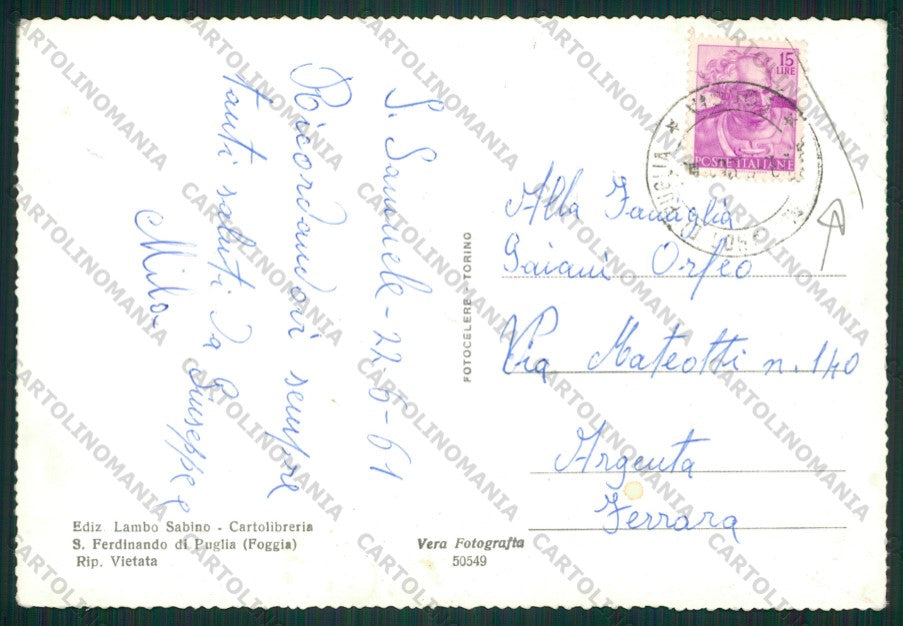 S. Samuele - 22-6-61
Ricordandovi sempre
Tanti saluti da Giuseppe e
Milo-
FOTOCELERE - TORINO
15
LIRE
POSTE ITALIANE
Alla Famiglia
Gaiani Orfeo
Via Mateotti n. 140
Argenta
Ferrara
Ediz. Lambo Sabino - Cartolibreria
S. Ferdinando di Puglia (Foggia)
Rip. Vietata
Vera Fotografia
50549
CARTOLINOMANIA